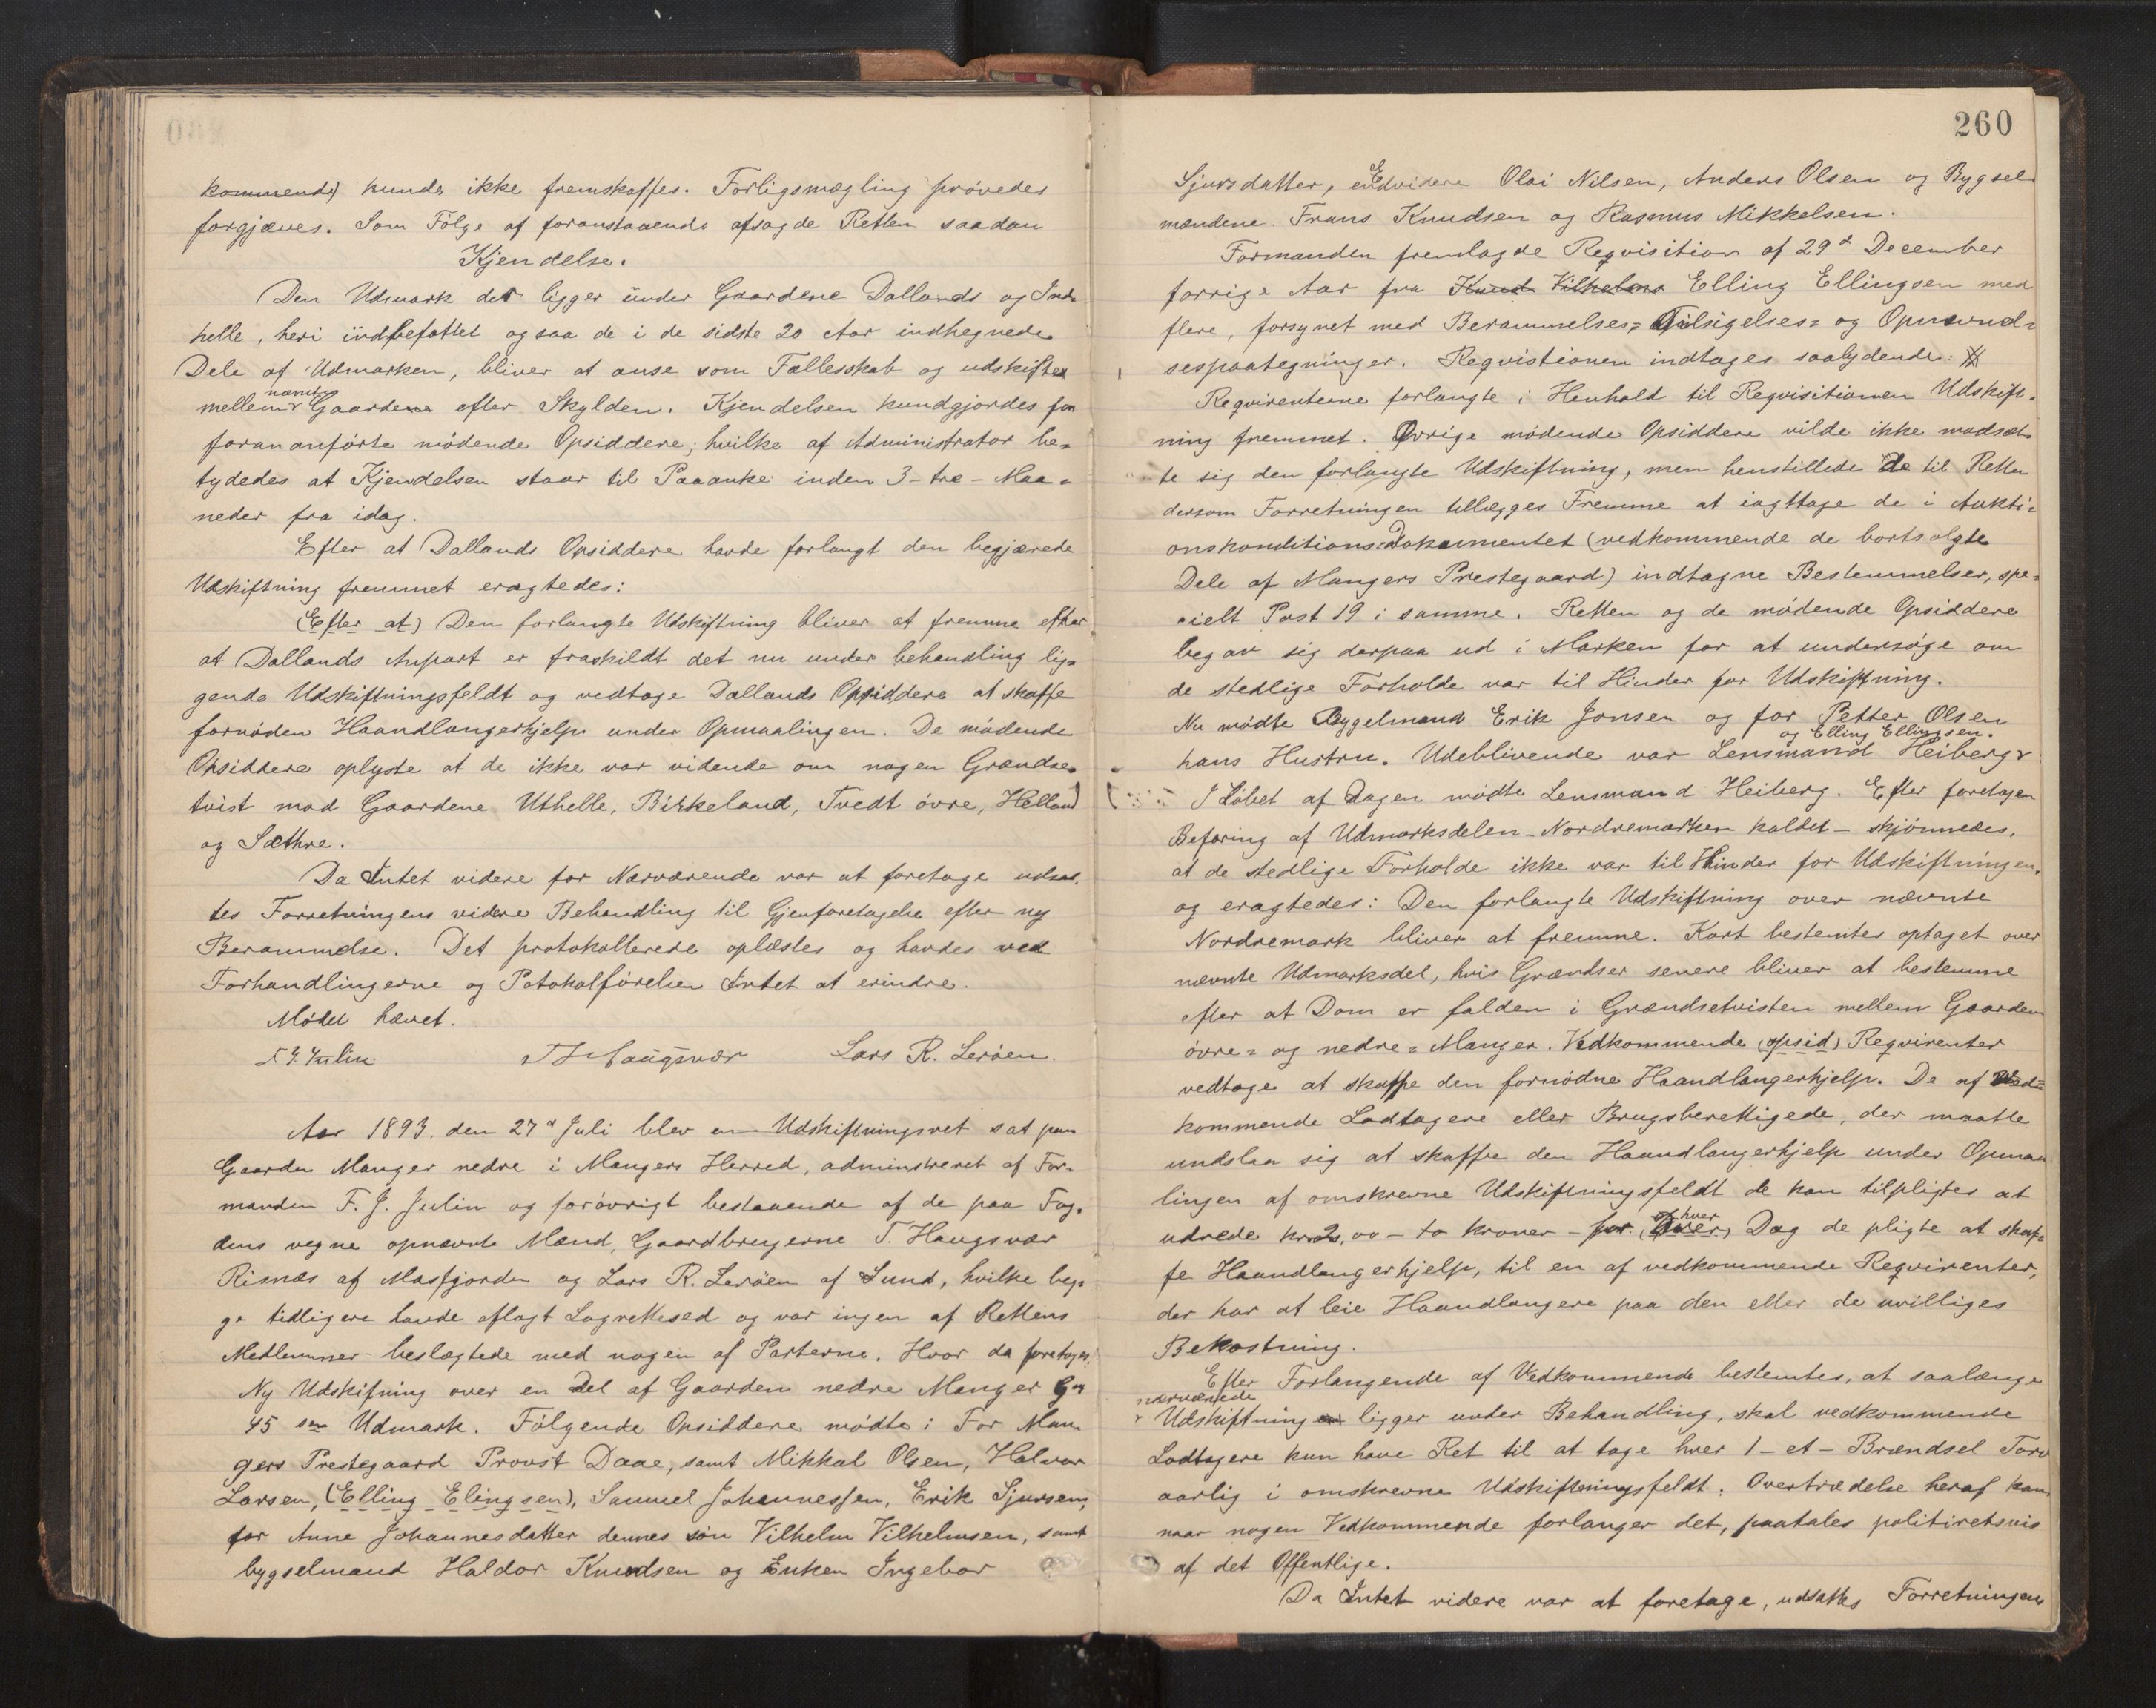 kommende) kunde ikke fremskaffes. Forligsmægling prøvedes
forgjæves. Som Følge af foranstaaende afsagde Retten saadan
Kjendelse.
Den Udmark der ligger under Gaardene Dallands og Ind-
helle, heri indbefattet ogsaa de i de sidste 20 Aar indhegnede
Dele af Udmarken, bliver at anse som Fællesskab og udskiftes
mellem nævnte Gaardene efter Skylden. Kjendelsen kundgjordes for
forananførte mødende Opsiddere; hvilke af Administrator be-
tydedes at Kjendelsen staar til Paaanke inden 3 - tre - Maa-
neder fra idag.
Efter at Dallands Opsiddere havde forlangt den begjærede
Udskiftning fremmet eragtedes:
(Efter at) Den forlangte Udskiftning bliver at fremme efter
at Dallands Anpart er fraskildt det nu under behandling lig-
gende Udskiftningsfeldt og vedtage Dallands Opsiddere at skaffe
fornøden Haandlangerhjelp under Opmaalingen. De mødende
Opsiddere oplyste at de ikke var vidende om nogen Grændse-
tvist mod Gaardene Uthelle, Birkeland, Tvedt øvre, Helland
og Sæthre.
Da Intet videre for Nærværende var at foretage udsat-
tes Forretningens videre Behandling til Gjenforetagelse efter ny
Berammelse. Det protokollerede oplæstes og havdes ved
Forhandlingerne og Potokolførelsen Intet at erindre.
Mødet hævet.
F. J. Julin T Haugsvær Lars R. Lerøen.
Aar 1893. den 27d Juli blev en Udskiftningsret sat paa
Gaarden Manger nedre i Mangers Herred, adminstreret af For-
manden F. J. Julin og forøvrigt bestaaende af de paa Fog-
dens vegne opnævnte Mænd, Gaardbrugerne T. Haugsvær
Risnæs af Masfjorden og Lars R. Lerøen af Lund, hvilke beg-
ge tidligere havde aflagt Lagrettesed og var ingen af Rettens
Medlemmer beslægtede med nogen af Parterne. Hvor da foretages
Ny Udskifning over en Del af Gaarden nedre Manger G.
45 Udmark. Følgende Opsiddere mødte: For Man-
gers Prestegaard Provst Daae, samt Mikkal Olsen, Halvor
Larsen, (Elling Elingsen), Samuel Johannessen, Erik Sjursen,
for Anne Johannesdatter dennes søn Vilhelm Vilhelmsen, samt
bygselmand Haldor Knudsen og Enken Ingebor
260
Sjursdatter, Endvidere Olai Nilsen, Anders Olsen og Bygsel-
mændene. Frans Knudsen og Rasmus Mikkelsen.
Formanden fremlagde Reqvisition af 29d December
forrige Aar fra Knud Vilhelms Elling Ellingsen med
flere, forsynet med Berammelses- Tilsigelses- og Opnævnel-
sespaategninger. Reqvistionen indtages saalydende:
Reqvirenterne forlangte i Henhold til Reqvisitionen Udskift-
ning fremmet. Øvrige mødende Opsiddere vilde ikke modsæt-
te sig den forlangte Udskiftning, men henstillede de til Retten
dersom Forretningen tillægges Fremme at iagttage de i Aukti-
onskonditions-Dokumentet (vedkommende de bortsolgte
Dele af Mangers Prestegaard) indtagne Bestemmelser, spe-
cielt Post 19 i samme. Retten og de mødende Opsiddere
begav sig derpaa ud i Marken for at undersøge om
de stedlige Forholde var til Hinder for Udskiftning.
Nu mødte Bygelmand Erik Jonsen og for Petter Olsen
hans Hustru. Udeblivende var Lensmand Heiberg og Elling Ellingsen.
I Løbet af Dagen mødte Lensmand Heiberg. Efter foretagen
Befaring af Udmarksdelen - Nordremarken kaldet - skjønnedes,
at de stedlige Forholde ikke var til Hinder for Udskiftningen,
og eragtedes: Den forlangte Udskiftning over nævnte
Nordremark bliver at fremme. Kart bestemtes optaget over
nævnte Udmarksdel, hvis Grændser senere bliver at bestemme
efter at Dom er falden i Grændsetvisten mellem Gaarden
øvre- og nedre- Manger. Vedkommende (opsid) Reqvirenter
vedtage at skaffe den fornødne Haandlangerhjelp. De af Ved-
kommende Lodtagere eller Brugsberettigede, der maatte
undslaa sig at skaffe den Haandlangerhjelp under Opmaa
lingen af omskrevne Udskiftningsfeldt de kan tilpligtes at
udrede kr. 2,00 - to kroner - for (hver) af hver Dag de pligte at skaf-
fe Haandlangerhjelp, til en af vedkommende Reqvirenter,
der har at leie Haandlangere paa den eller de uvilliges
Bekostning.
Efter Forlangende af Vedkommende bestemtes, at saalænge
nærværende Udskiftning ligger under Behandling, skal vedkommende
Lodtagere kun have Ret til at tage hver 1 - et - Brændsel Torv
aarlig i omskrevne Udskiftningsfeldt. Overtrædelse heraf kan
naar nogen Vedkommende forlanger det, paatales politiretsvis
af det Offentlige.
Da Intet videre var at foretage, udsattes Forretningens